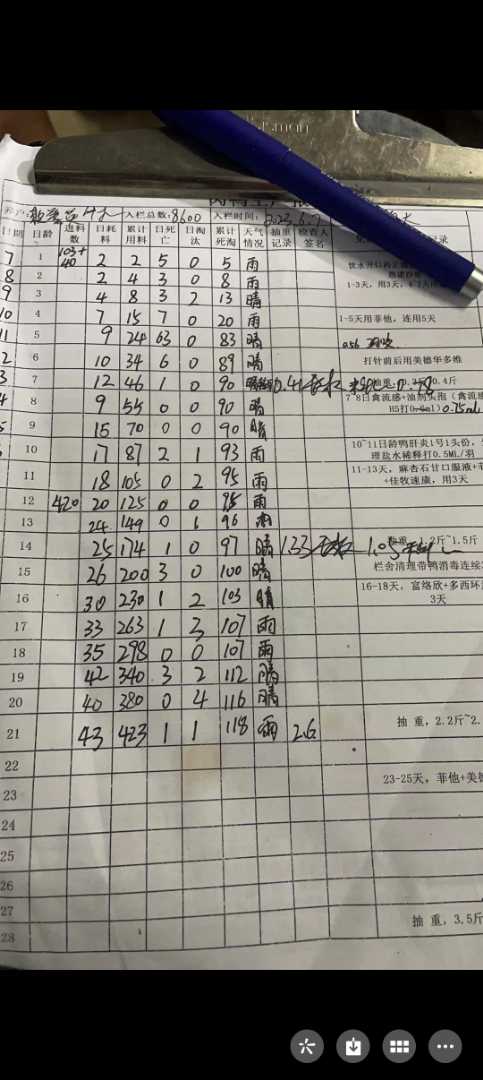 入栏总数:8600 入栏时间:2023.6.7
日期 日龄 进料数 日耗料 累计用料 日死亡 日淘汰 累计死淘 天气情况 抽重记录 检查人签名
7 1 103+40 2 2 5 0 5 雨
8 2 2 4 3 0 8 雨
1-3天，用3天，
9 3 4 8 3 2 13 晴
10 4 7 15 7 0 20 雨 1-5天用菲他，连用5天
11 5 9 24 63 0 83 晴
6 10 34 6 0 89 晴 打针前后用美德华多维
7 12 46 1 0 90 0.41 0.4斤
8 9 55 0 0 90 晴 7-8日禽流感+油剂头孢（禽流感
H5打 0.75ml
9 15 70 0 0 90 晴
10 17 87 2 1 93 雨 10~11日龄鸭肝炎1号1头份，
理盐水稀释打0.5ML/羽
11 18 105 0 2 95 雨 11-13天，麻杏石甘口服液+
+佳牧速康，用3天
12 420 20 125 0 0 95 雨
13 24 149 0 1 96 雨
14 25 174 1 0 97 晴 1.33 1.05 2斤~1.5斤
15 26 200 3 0 100 晴 栏舍清理带鸭消毒连续
16 30 230 1 2 103 晴 16-18天，富络欣+多西环
3天
17 33 263 1 3 107 雨
18 35 298 0 0 107 雨
19 42 340 3 2 112 晴
20 40 380 0 4 116 晴
21 43 423 1 1 118 雨 2.6 抽重，2.2斤~2.
22
23 23-25天，菲他+美
24
25
26
27
28 抽重，3.5斤